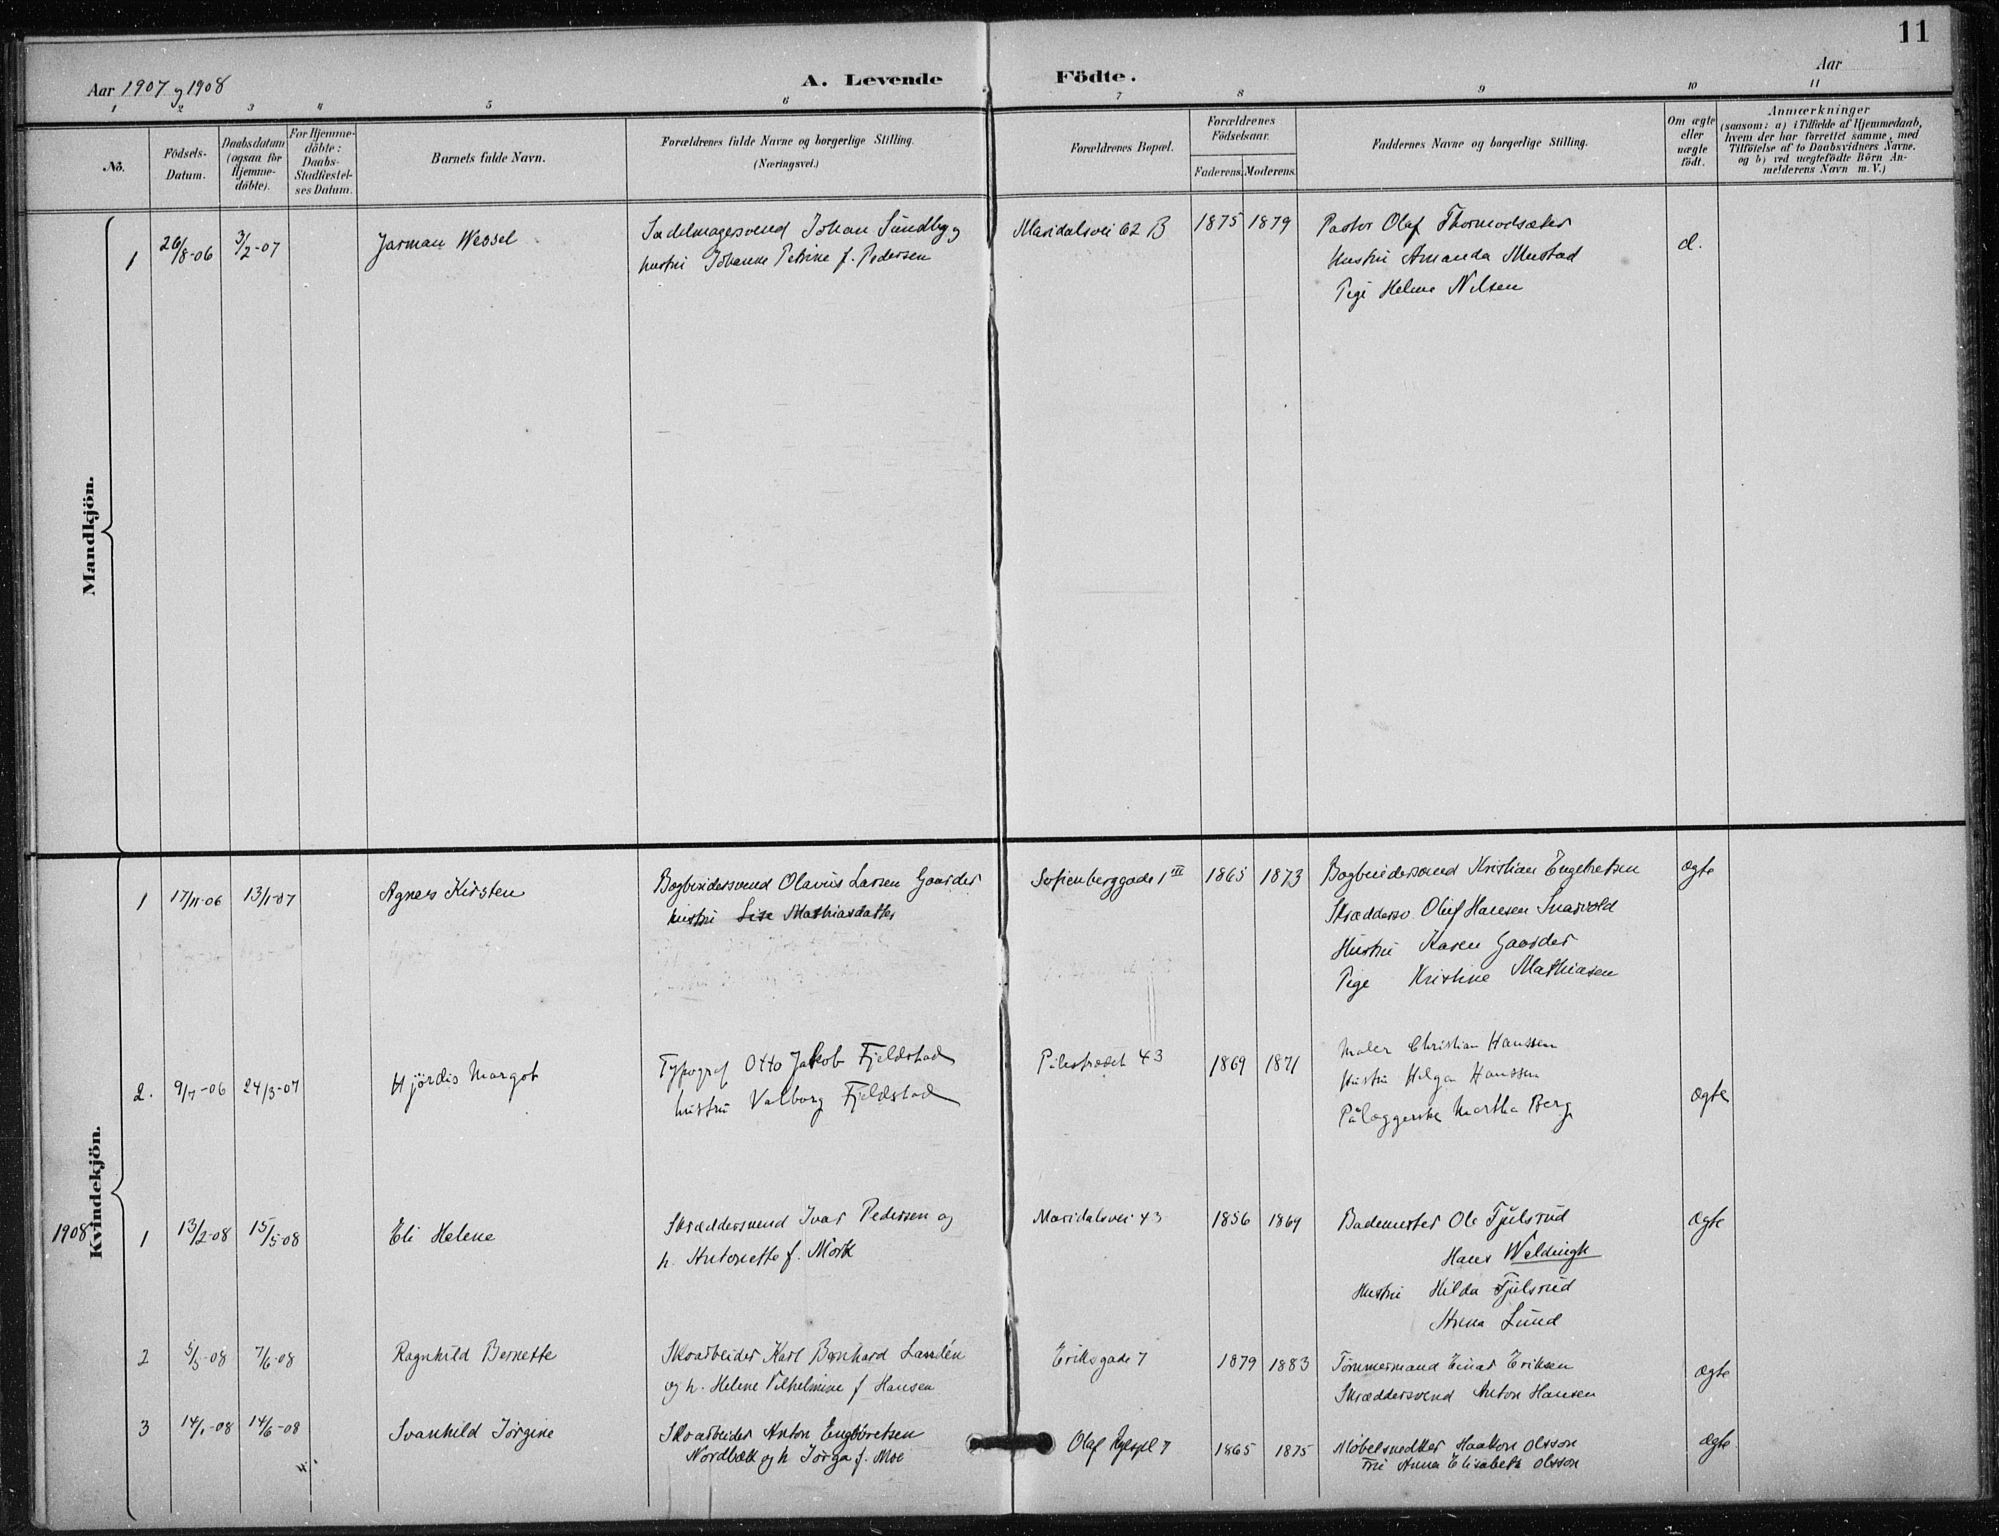 11
Aar 1907 og 1908
A. Levende Födte.
Aar
1 2 3 4 5 6 7 8 9 10 11
No.
Födsels-Datum.
Daabsdatum (ogsaa för Hjemme-döbte).
For Hjemme-döbte: Daabs-Stadfæstel-ses Datum.
Barnets fulde Navn.
Forældrenes fulde Navne og borgerlige Stilling.
(Næringsvei.)
Forældrenes Bopæl.
Forældrenes Födselsaar.
Faderens. Moderens.
Faddernes Navne og borgerlige Stilling.
Om ægte eller uægte födt.
Anmærkninger
(saasom: a) i Tilfælde af Hjemmedaab, hvem der har forrettet samme, med Tilföielse af to Daabsvidners Navne. og b) ved uægtefödte Börn An-melderens Navn m. V.)
Mandkjön.
1 26/8-06 3/2-07 Jarman Wessel Sadelmagersvend Johan Sundby og Maridalsvei 62 B 1875 1879 Pastor Olaf Thormodsæter
hustru Johanne Petrine f. Pedersen Hustru Amanda Mustad
Pige Helene Nilsen
Kvindekjön.
1 17/11-06 13/1-07 Agnes Kirsten Bogbindersvend Olavus Larsen Gaarder Sofienberggade 1 III 1865 1873 Bogbindersvend Kristian Engebretsen ægte
hustru Lise Mathiasdatter Skræddersv. Oluf Hansen Snarvold
Hustru Karen Gaarder
Pige Kristine Mathiasen
2. 9/7-06 24/3-07 Hjördis Margot Typograf Otto Jakob Fjeldstad Pilestrædet 43 1869 1871 Maler Christian Hanssen
hustru Valborg Fjeldstad Hustru Helga Hanssen
Pålæggerske Martha Berg ægte
1908
1 13/2-08 15/5-08 Eli Helene Skræddersvend Ivar Pedersen og Maridalsvei 43 1856 1864 Bademester Ole Fjulsrud ægte
h. Antonette f. Mörk Hans Weldingh
Hustru Hilda Fjulsrud
Anna Lund
2 5/3-08 7/6-08 Ragnhild Bernette Skoarbeider Karl Bernhard Landén Eriksgade 7 1879 1883 Tømmermand Einar Eriksen ægte
og h. Helene Vilhelmine f Hansen Skræddersvend Anton Hansen
3 14/1-08 14/6-08 Svanhild Jörgine Skoarbeider Anton Engbretsen Olaf Ryespl 7 1865 1875 Møbelsnedker Haakon Olsson ægte
Nordbæk og h Jörga f. Moe Fru Anna Elisabeth Olsson